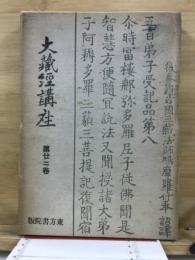 大藏經講座
第廿二卷
東方書院版
五百弟子受記品第八
後秦龜茲國三藏法師鳩摩羅什奉詔譯
爾時富樓那彌多羅尼子從佛聞是
智慧方便隨宜說法又聞授諸大弟
子阿耨多羅三藐三菩提記復聞宿